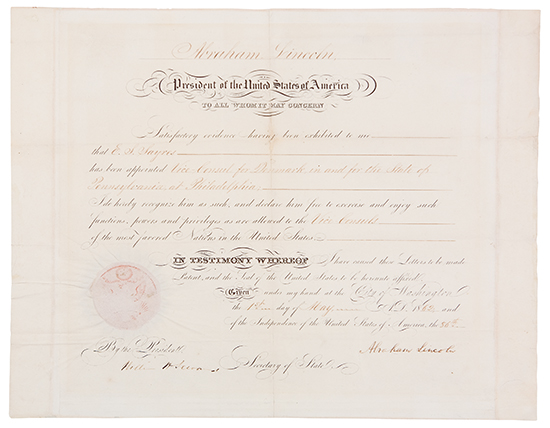 Abraham Lincoln,
President of the United States of America
TO ALL WHOM IT MAY CONCERN
Satisfactory evidence having been exhibited to me
that E. S. Sayres
has been appointed Vice Consul for Denmark in and for the State of
Pennsylvania, at Philadelphia
I do hereby recognize him as such, and declare him free to exercise and enjoy such
functions, powers and privileges as are allowed to the Vice Consuls
of the most favored Nations in the United States.
IN TESTIMONY WHEREOF I have caused these Letters to be made
Patent, and the Seal of the United States to be hereunto affixed.
Given under my hand at the City of Washington
the 1st day of May A.D. 1862, and
of the Independence of the United States of America, the 86th.
Abraham Lincoln
By the President
Secretary of State.